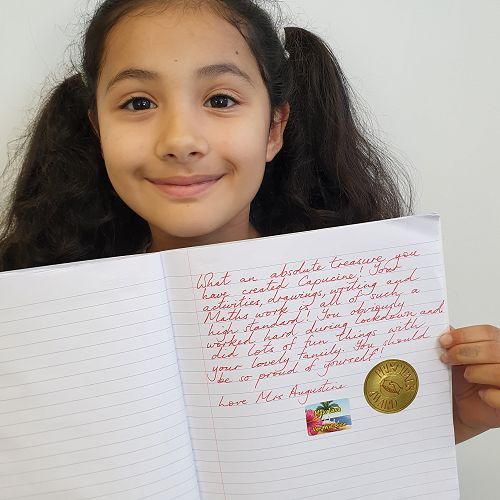 What an absolute treasure you
have created Capucine! Your
activities, drawings, writing and
Maths work is all of such a
high standard! You obviously
worked hard during lockdown and
did lots of fun things with
your lovely family. You should
be so proud of yourself!
Love Mrs Augustine
AWARD